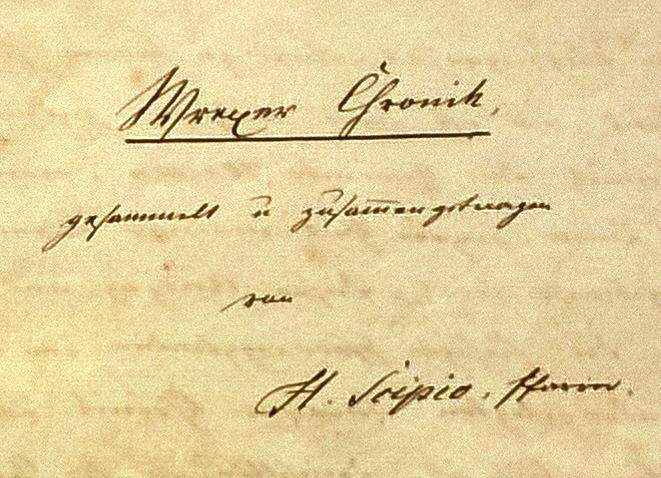 Wrexer Chronik,
gesammelt u zusam̅engetragen
von
H. Scipio, Pfarrer.